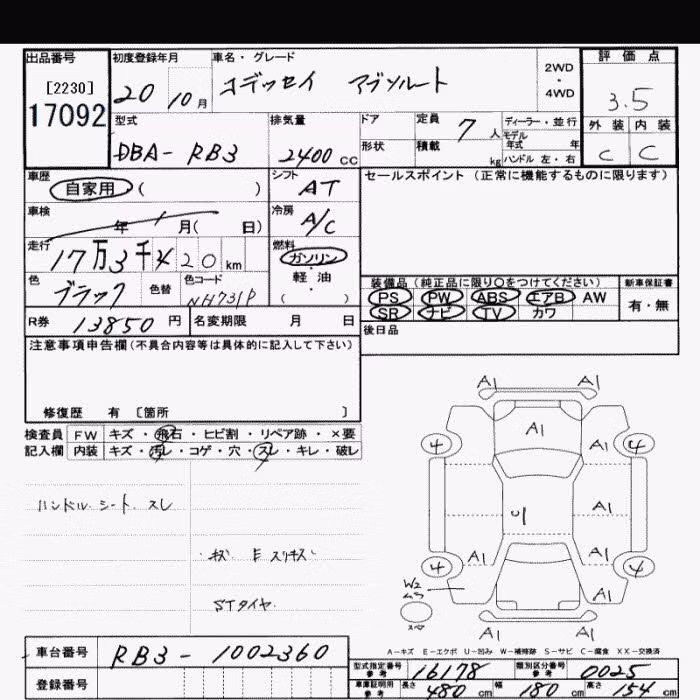 出品番号 初度登録年月 車名・グレード 2WD・4WD 評価点
[2230]
17092
20 10月 オデッセイ アブソルート 3.5
型式 排気量 ドア 定員 7人 ディーラー・並行 外装 内装
モデル年式 年
DBA-RB3 2400cc 形状 積載 kg ハンドル 左・右 C C
車歴 シフト セールスポイント (正常に機能するものに限ります)
自家用 ( ) AT
車検 冷房
年 月( 日) A/C
走行 燃料
17万3千 20 km ガソリン
色 色替 色コード 軽・油 装備品(純正品に限り○をつけてください) 新車保証書
ブラック NH731P ( ) PS PW ABS エアB AW 有・無
SR ナビ TV カワ
R券 13850円 名変期限 月 日 後日品
注意事項申告欄(不具合内容等は具体的に記入して下さい)
修復歴 有 [箇所 ]
検査員 FW キズ・飛石・ヒビ割・リペア跡・×要
記入欄 内装 キズ・汚レ・コゲ・穴・スレ・キレ・破レ
A1 A1
A1
4 4
ハンドル シート スレ
A1 A1
A1 A1
キズ
4 4
W2
A1
STタイヤ
A1 A1
A-キズ E-エクボ U-凹み W-補修跡 S-サビ C-腐食 XX-交換済
車台番号 RB3-1002360
型式指定番号 参考 16178 類別区分番号 参考 0025
登録番号
車庫証明用 参考 長さ 480cm 幅 180cm 高さ 154cm